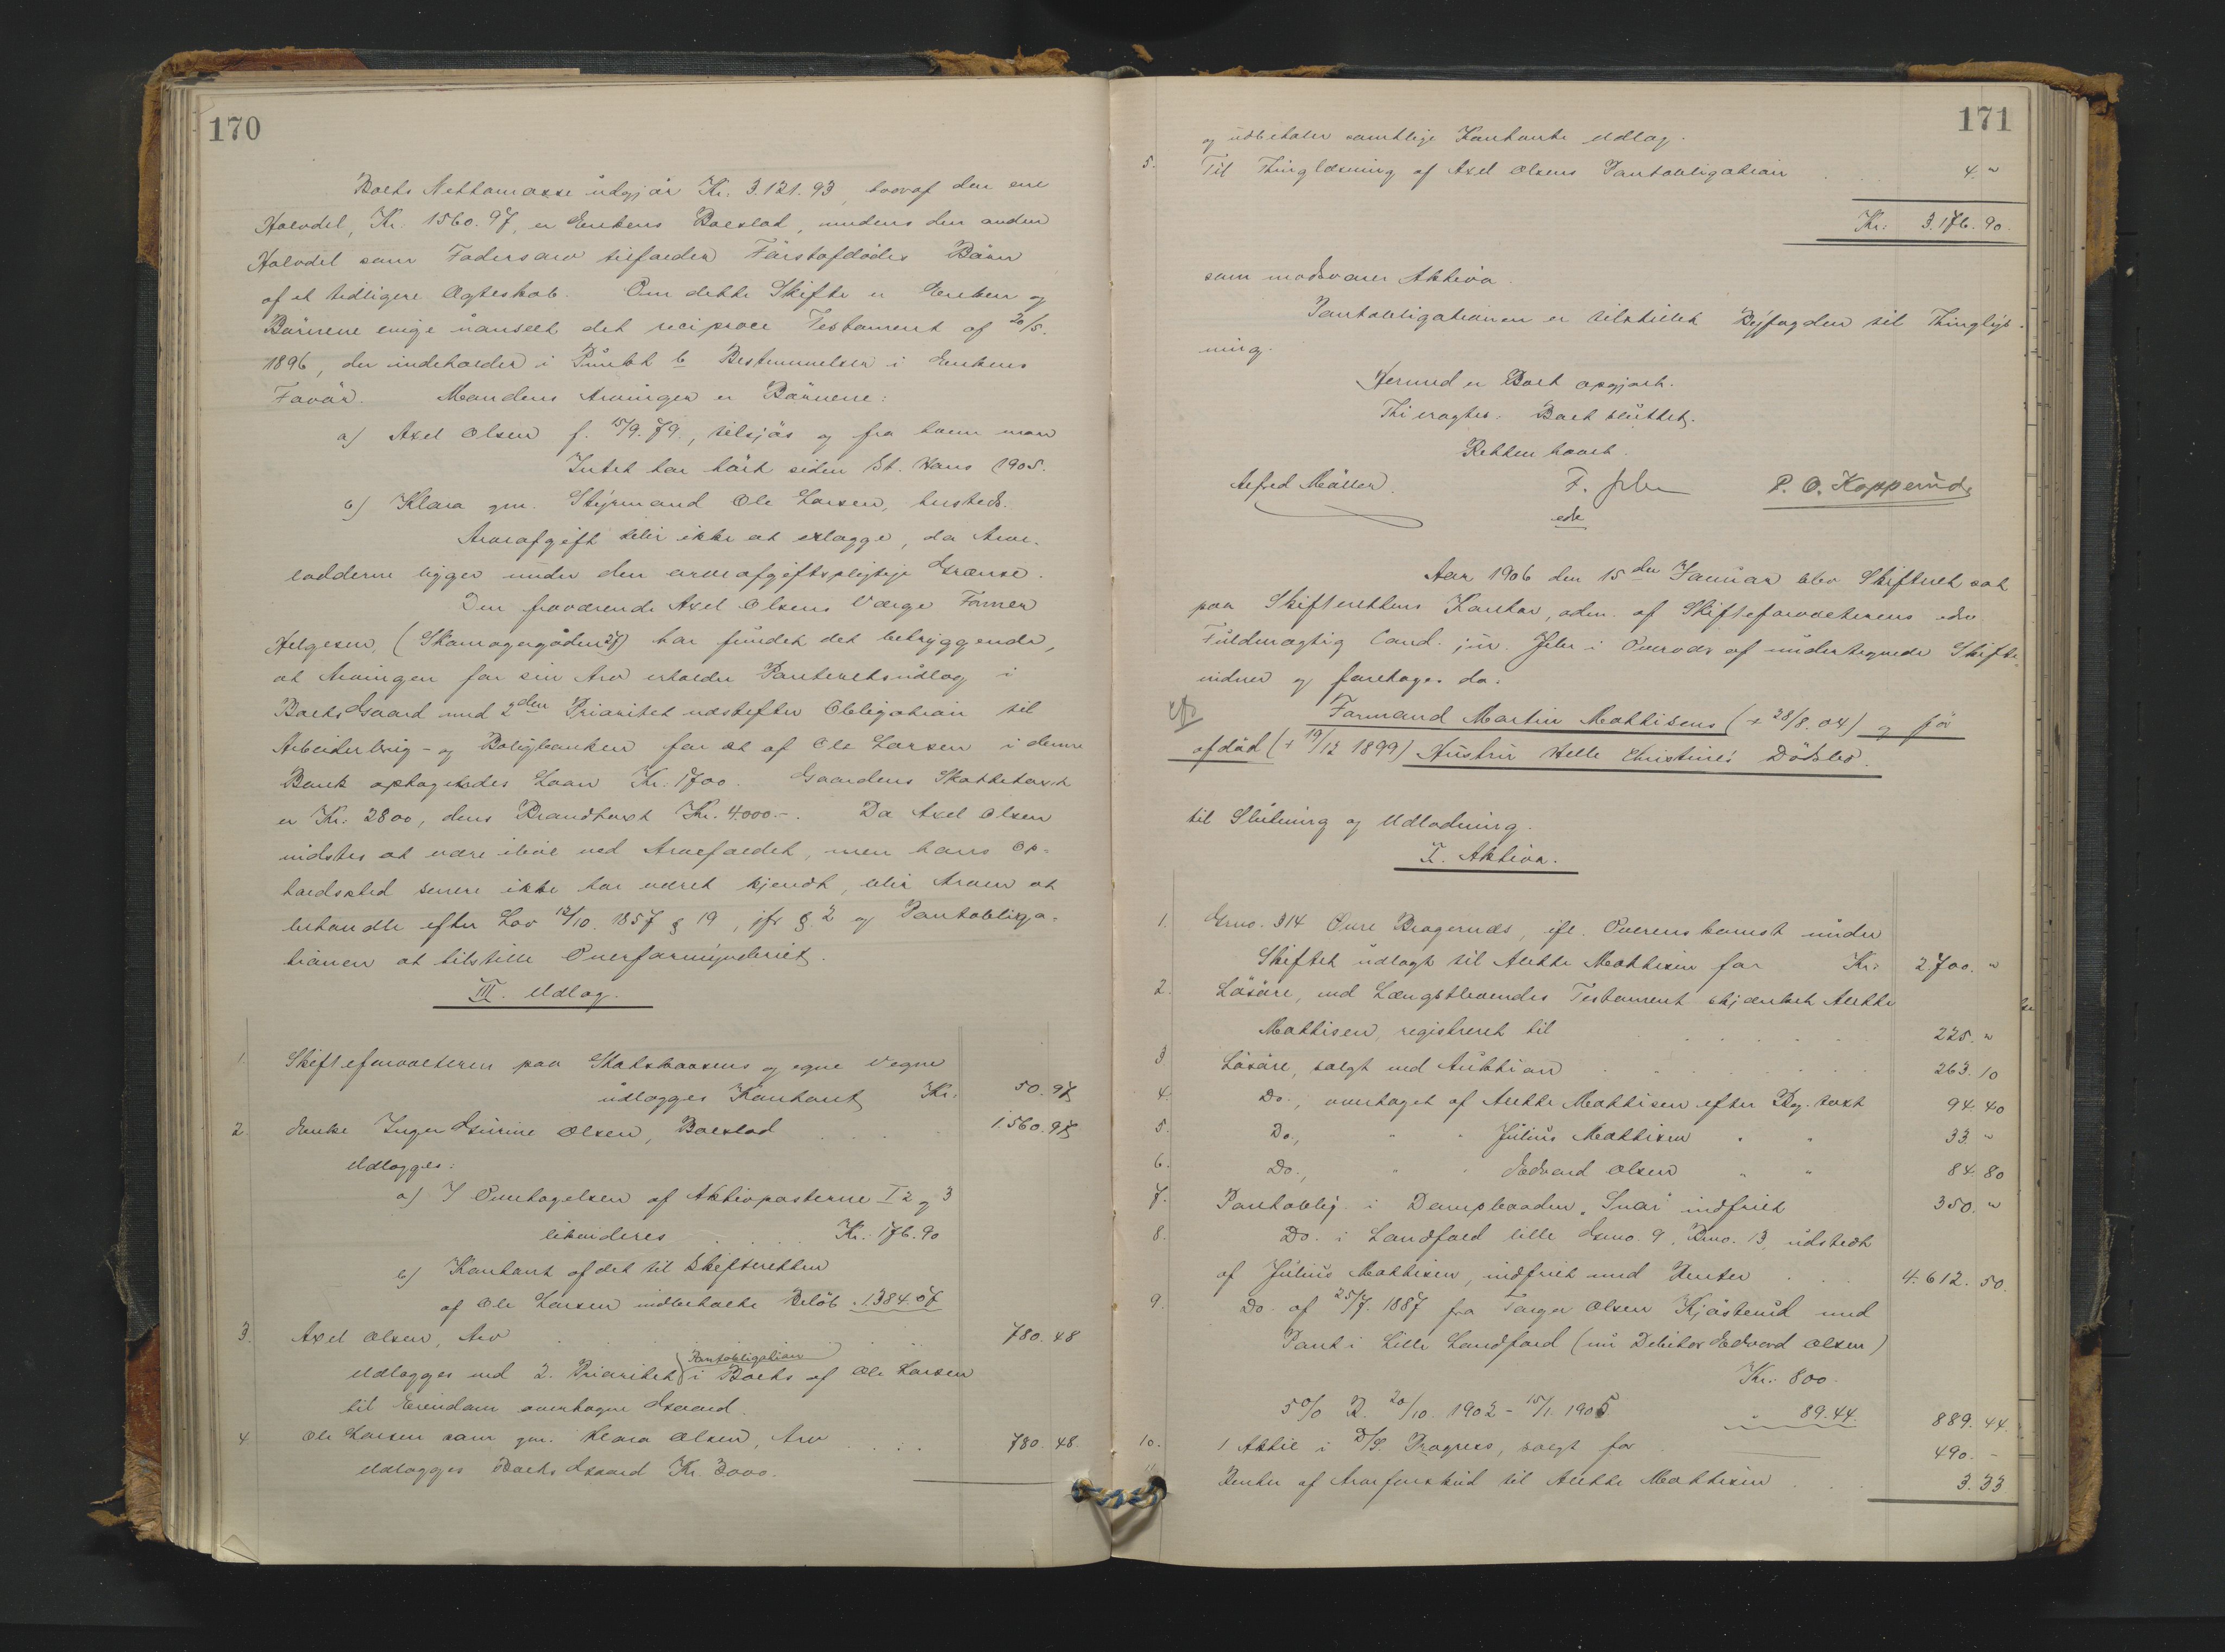 170
Boets Nettomasse udgjør Kr. 3.121.93, hvoraf den ene
Halvdel, Kr. 1560.97, er Enkens Boeslod, medens den anden
Halvdel som Fadersarv tilfalder Førstafdødes Børn
af et tidligere Ægteskab. Om dette Skifte er Enken og
Børnene enige uanseet det reciproce Testament af 20/5.
1896, der indeholder i Punkt b Bestemmelser i Enkens
Favør. Mandens Arvinger er Børnene:
a) Axel Olsen f. 15/9.79, tilsjøs og fra hvem man
Intet har hørt siden St. Hans 1905.
b) Klara gm. Styrmand Ole Larsen, hersteds.
Arveafgift blir ikke at erlægge, da Arve-
lodderne ligger under den arveafgiftspligtige Grænse.
Den fraværende Axel Olsens Værge Former
Helgesen, (Skomagergaden 27) har fundet det betryggende,
at Arvingen for sin Arv erholder Panteretsudlæg i
Boets Gaard med 2den Prioritet næstefter Obligation til
Arbeiderbrug- og Boligbanken for et af Ole Larsen i denne
Bank optagendes Laan Kr. 1700. Gaardens Skattetaxt
er Kr. 2800, dens Brandtaxt Kr. 4.000.-. Da Axel Olsen
vidstes at være ilive ved Arvefaldet, men hans Op-
holdssted senere ikke har været kjendt, blir Arven at
behandle efter Lov 12/10. 1857 § 19, jfr. § 2 og Pantobliga-
tionen at tilstille Overformynderiet.
III. Udlæg.
1. Skifteforvalteren paa Statskassens og egne Vegne
udlægges Kontant Kr. 50.97
2. Enke Inger Gurine Olsen, Boeslod 1.560.97
Udlægges:
a) I Overtagelsen af Aktivposterne I 2 og 3
likvideres Kr. 176.90
b) Kontant af det til Skifteretten
af Ole Larsen indbetalte Beløb " 1384.07
3. Axel Olsen, Arv 780.48
Pantobligation
Udlægges med 2. Prioritet i Boets af Ole Larsen
til Eiendom overtagne Gaard.
4. Ole Larsen som gm. Klara Olsen, Arv 780.48.
Udlægges Boets Gaard Kr. 3000.
171
og udbetaler samtlige Kontante Udlæg.
5. Til Thinglæsning af Axel Olsens Pantobligation 4."
Kr. 3.176.90.
som modsvarer Aktiva.
Pantobligationen er tilstillet Byfogden til Thinglys-
ning.
Hermed er Boet opgjort.
Thi eragtes: Boet sluttet.
Retten hævet.
Alfred Møller. P. O. Kopperud
edv
Aar 1906 den 15den Januar blev Skifteret sat
paa Skifterettens Kontor, adm. af Skifteforvalterens edsv.
Fuldmægtig Cand. jur. i Overvær af undertegnede Skifte-
vidner og foretoges da:
Formand Martin Mathisens (+ 28/8.04) og før
afdød (+ 19/12 1899) Hustru Helle Christines Dødsbo.
til Slutning og Udlodning.
I. Aktiva.
1. Grno. 314 Øvre Bragernæs, ifl. Overenskomst under
Skiftet udlagt til Alette Mathisen for Kr. 2.700."
2. Løsøre, ved Længstlevendes Testament skjænket Alette
Mathisen, registreret til 225."
3. Løsøre, solgt ved Auktion 263.10
4. Do., overtaget af Alette Mathisen efter Reg. taxt 94.40
5. Do., " " Julius Mathisen " " 33."
6. Do., " " Edvard Olsen " " 84.80
7. Pantoblig. i Dampbaaden "Snar" indfriet 350."
8. Do. i Landfald lille Grno. 9, Brno. 13, udstedt
af Julius Mathisen, indfriet med Renter 4.612.50.
9. Do. af 25/7. 1887 fra Torger Olsen Kjøsterud med
Pant i Lille Landfald (nu Debitor Edvard Olsen)
Kr. 800.
5 0/0 R. 20/10. 1902 - 15/1. 1905 " 89.44. 889.44.
10. 1 Aktie i D/S. Progress, solgt for 490.-
11. Renter af Arveforskud til Alette Mathisen 3.33